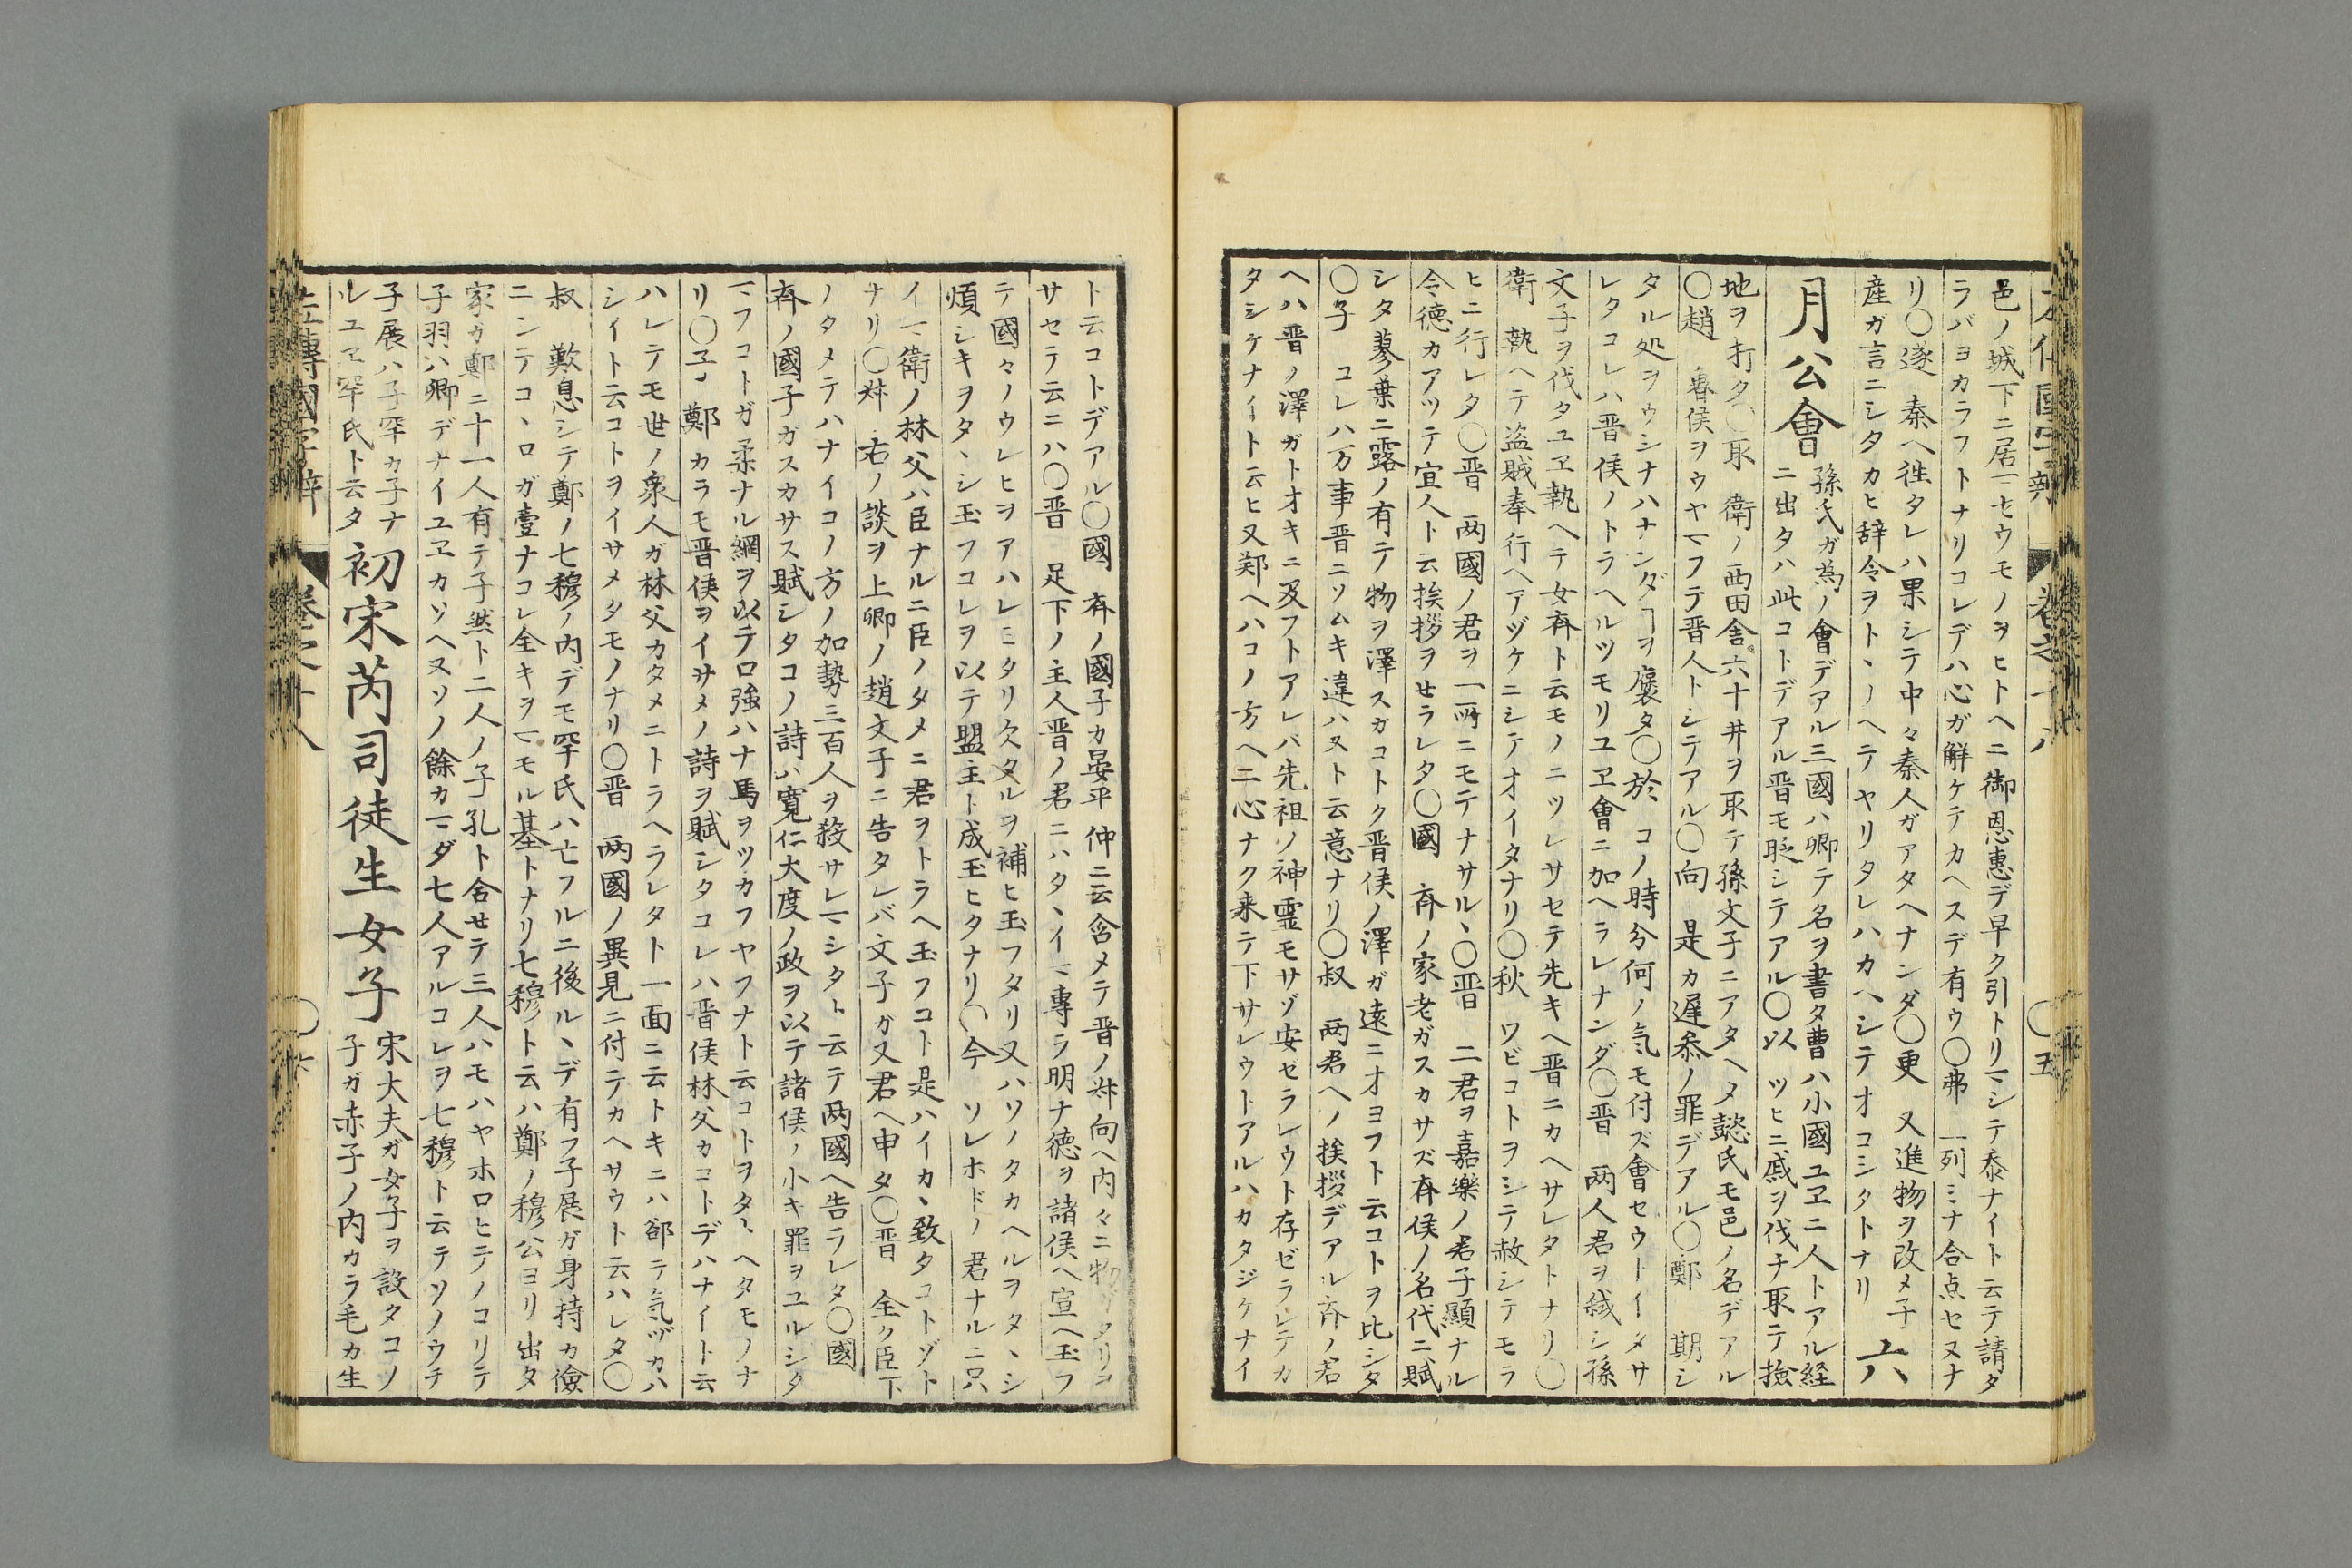 左傳國字辯 巻之十八 〇五
邑ノ城下ニ居マセウモノヲヒトヘニ御恩惠デ早ク引トリマシテ忝ナイト云テ請タ
ラバヨカラフトナリコレデハ心ガ解ケテカヘスデ有ウ〇弗 一列ミナ合点セヌナ
リ〇遂 秦ヘ徃タレハ果シテ中々秦人ガアタヘナンダ〇更 又進物ヲ改メ子
産ガ言ニシタカヒ辞令ヲトヽノヘテヤリタレハカヘシテオコシタトナリ 六
月公會
孫氏ガ為ノ會デアル三國ハ卿テ名ヲ書タ曹ハ小國ユヱニ人トアル経
ニ出タハ此コトデアル晋モ貶シテアル〇以 ツヒニ戚ヲ伐チ取テ撿
地ヲ打タ〇取 衛ノ西田舎六十井ヲ取テ孫文子ニアタヘタ懿氏モ邑ノ名デアル
〇趙 魯侯ヲウヤマフテ晋人トシテアル〇向 是カ遅参ノ罪デアル〇鄭 期シ
タル処ヲウシナハナンダヿヲ褒タ〇於 コノ時分何ノ気モ付ズ會セウトイタサ
レタコレハ晋侯ノトラヘルツモリユヱ會ニ加ヘラレナンダ〇晋 两人君ヲ弑シ孫
文子ヲ伐タユヱ執ヘテ女斉ト云モノニツレサセテ先キヘ晋ニカヘサレタトナリ〇
衛 執ヘテ盗賊奉行ヘアヅケニシテオイタナリ〇秋 ワビコトヲシテ赦シテモラ
ヒニ行レタ〇晋 两國ノ君ヲ一所ニモテナサルヽ〇晋 二君ヲ嘉樂ノ君子顯ナル
令徳カアツテ宜人ト云挨拶ヲせラレタ〇國 斉ノ家老ガスカサズ斉侯ノ名代ニ賦
シタ蓼蕭ニ露ノ有テ物ヲ澤スガコトク晋侯ノ澤ガ遠ニオヨフト云コトヲ比シタ
〇子 コレハ万事晋ニソムキ違ハヌト云意ナリ〇叔 两君ヘノ挨拶デアル斉ノ君
ヘハ晋ノ澤ガトオキニ及フトアレバ先祖ノ神霊モサゾ安セラレウト存ゼラレテカ
タシケナイト云ヒ又鄭ヘハコノ方ヘ二心ナク来テ下サレウトアルハカタジケナイ
ト云コトデアル〇國 斉ノ國子カ晏平仲ニ云含メテ晋ノ叔向ヘ内々ニ物ガタリコ
サセテ云ニハ〇晋 足下ノ主人晋ノ君ニハタヾイマ専ラ明ナ徳ヲ諸侯ヘ宣ヘ玉フ
テ國々ノウレヒヲアハレミタリ欠タルヲ補ヒ玉フタリ又ハソノタカヘルヲタヽシ
煩シキヲタヽシ玉フコレヲ以テ盟主ト成玉ヒタナリ〇今 ソレホドノ君ナルニ只
イマ衛ノ林父ハ臣ナルニ臣ノタメニ君ヲトラヘ玉フコト是ハイカヽ致タコトゾト
ナリ〇叔 右ノ談ヲ上卿ノ趙文子ニ告タレバ文子ガ又君ヘ申タ〇晋 全ク臣下
ノタメテハナイコノ方ノ加勢三百人ヲ殺サレマシタト云テ两國ヘ告ラレタ〇國
斉ノ國子ガスカサス賦シタコノ詩ハ寛仁大度ノ政ヲ以テ諸侯ノ小キ罪ヲユルシタ
マフコトガ柔ナル綱ヲ以テロ強ハナ馬ヲツカフヤフナト云コトヲタヽヘタモノナ
リ〇子 鄭カラモ晋侯ヲイサメノ詩ヲ賦シタコレハ晋侯林父カコトデハナイト云
ハレテモ世ノ衆人ガ林父カタメニトラヘラレタト一面ニ云トキニハ卻テ気ヅカハ
シイト云コトヲイサメタモノナリ〇晋 两國ノ異見ニ付テカヘサウト云ハレタ〇
叔 歎息シテ鄭ノ七穆ノ内デモ罕氏ハ亡フルニ後ルヽデ有フ子展ガ身持カ儉
ニンテコヽロガ壹ナコレ全キヲマモル基トナリ七穆ト云ハ鄭ノ穆公ヨリ出タ
家ガ鄭ニ十一人有テ子然ト二人ノ子孔ト合せテ三人ハモハヤホロヒテノコリテ
子羽ハ卿デナイユヱカゾヘヌソノ餘カマダ七人アルコレヲ七穆ト云テソノウチ
子展ハ子罕カ子ナ
ルユヱ罕氏ト云タ
初宋芮司徒生女子
宋大夫ガ女子ヲ設タコノ
子ガ赤子ノ内カラ毛カ生
左傳國字辯 巻之十八 〇六